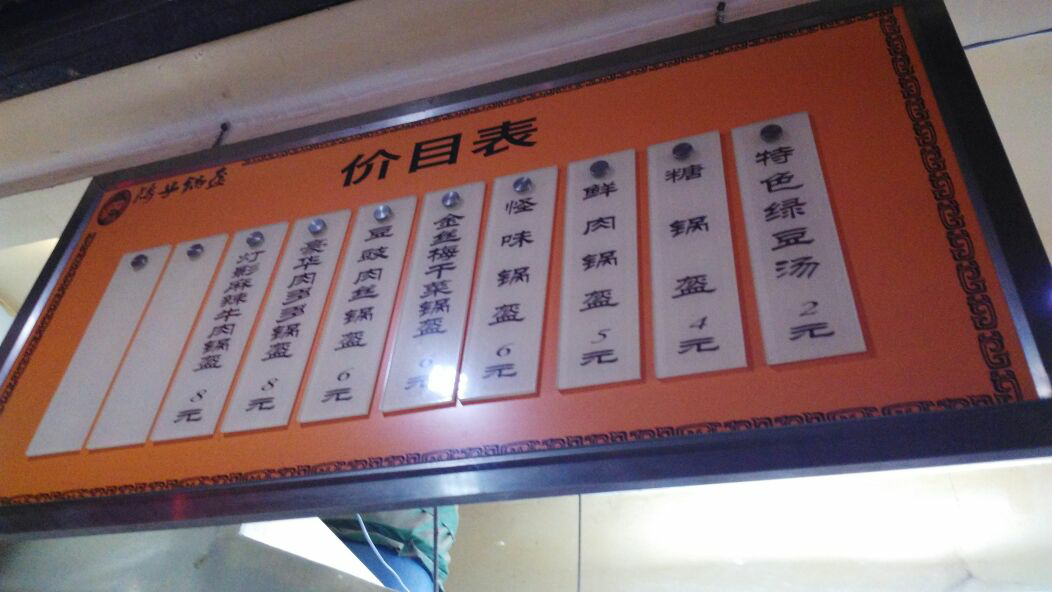 价目表
特色绿豆汤 2元
糖锅盔 4元
鲜肉锅盔 5元
怪味锅盔 6元
金丝梅干菜锅盔 6元
豆豉肉丝锅盔 6元
豪华肉多多锅盔 8元
灯影麻辣牛肉锅盔 8元